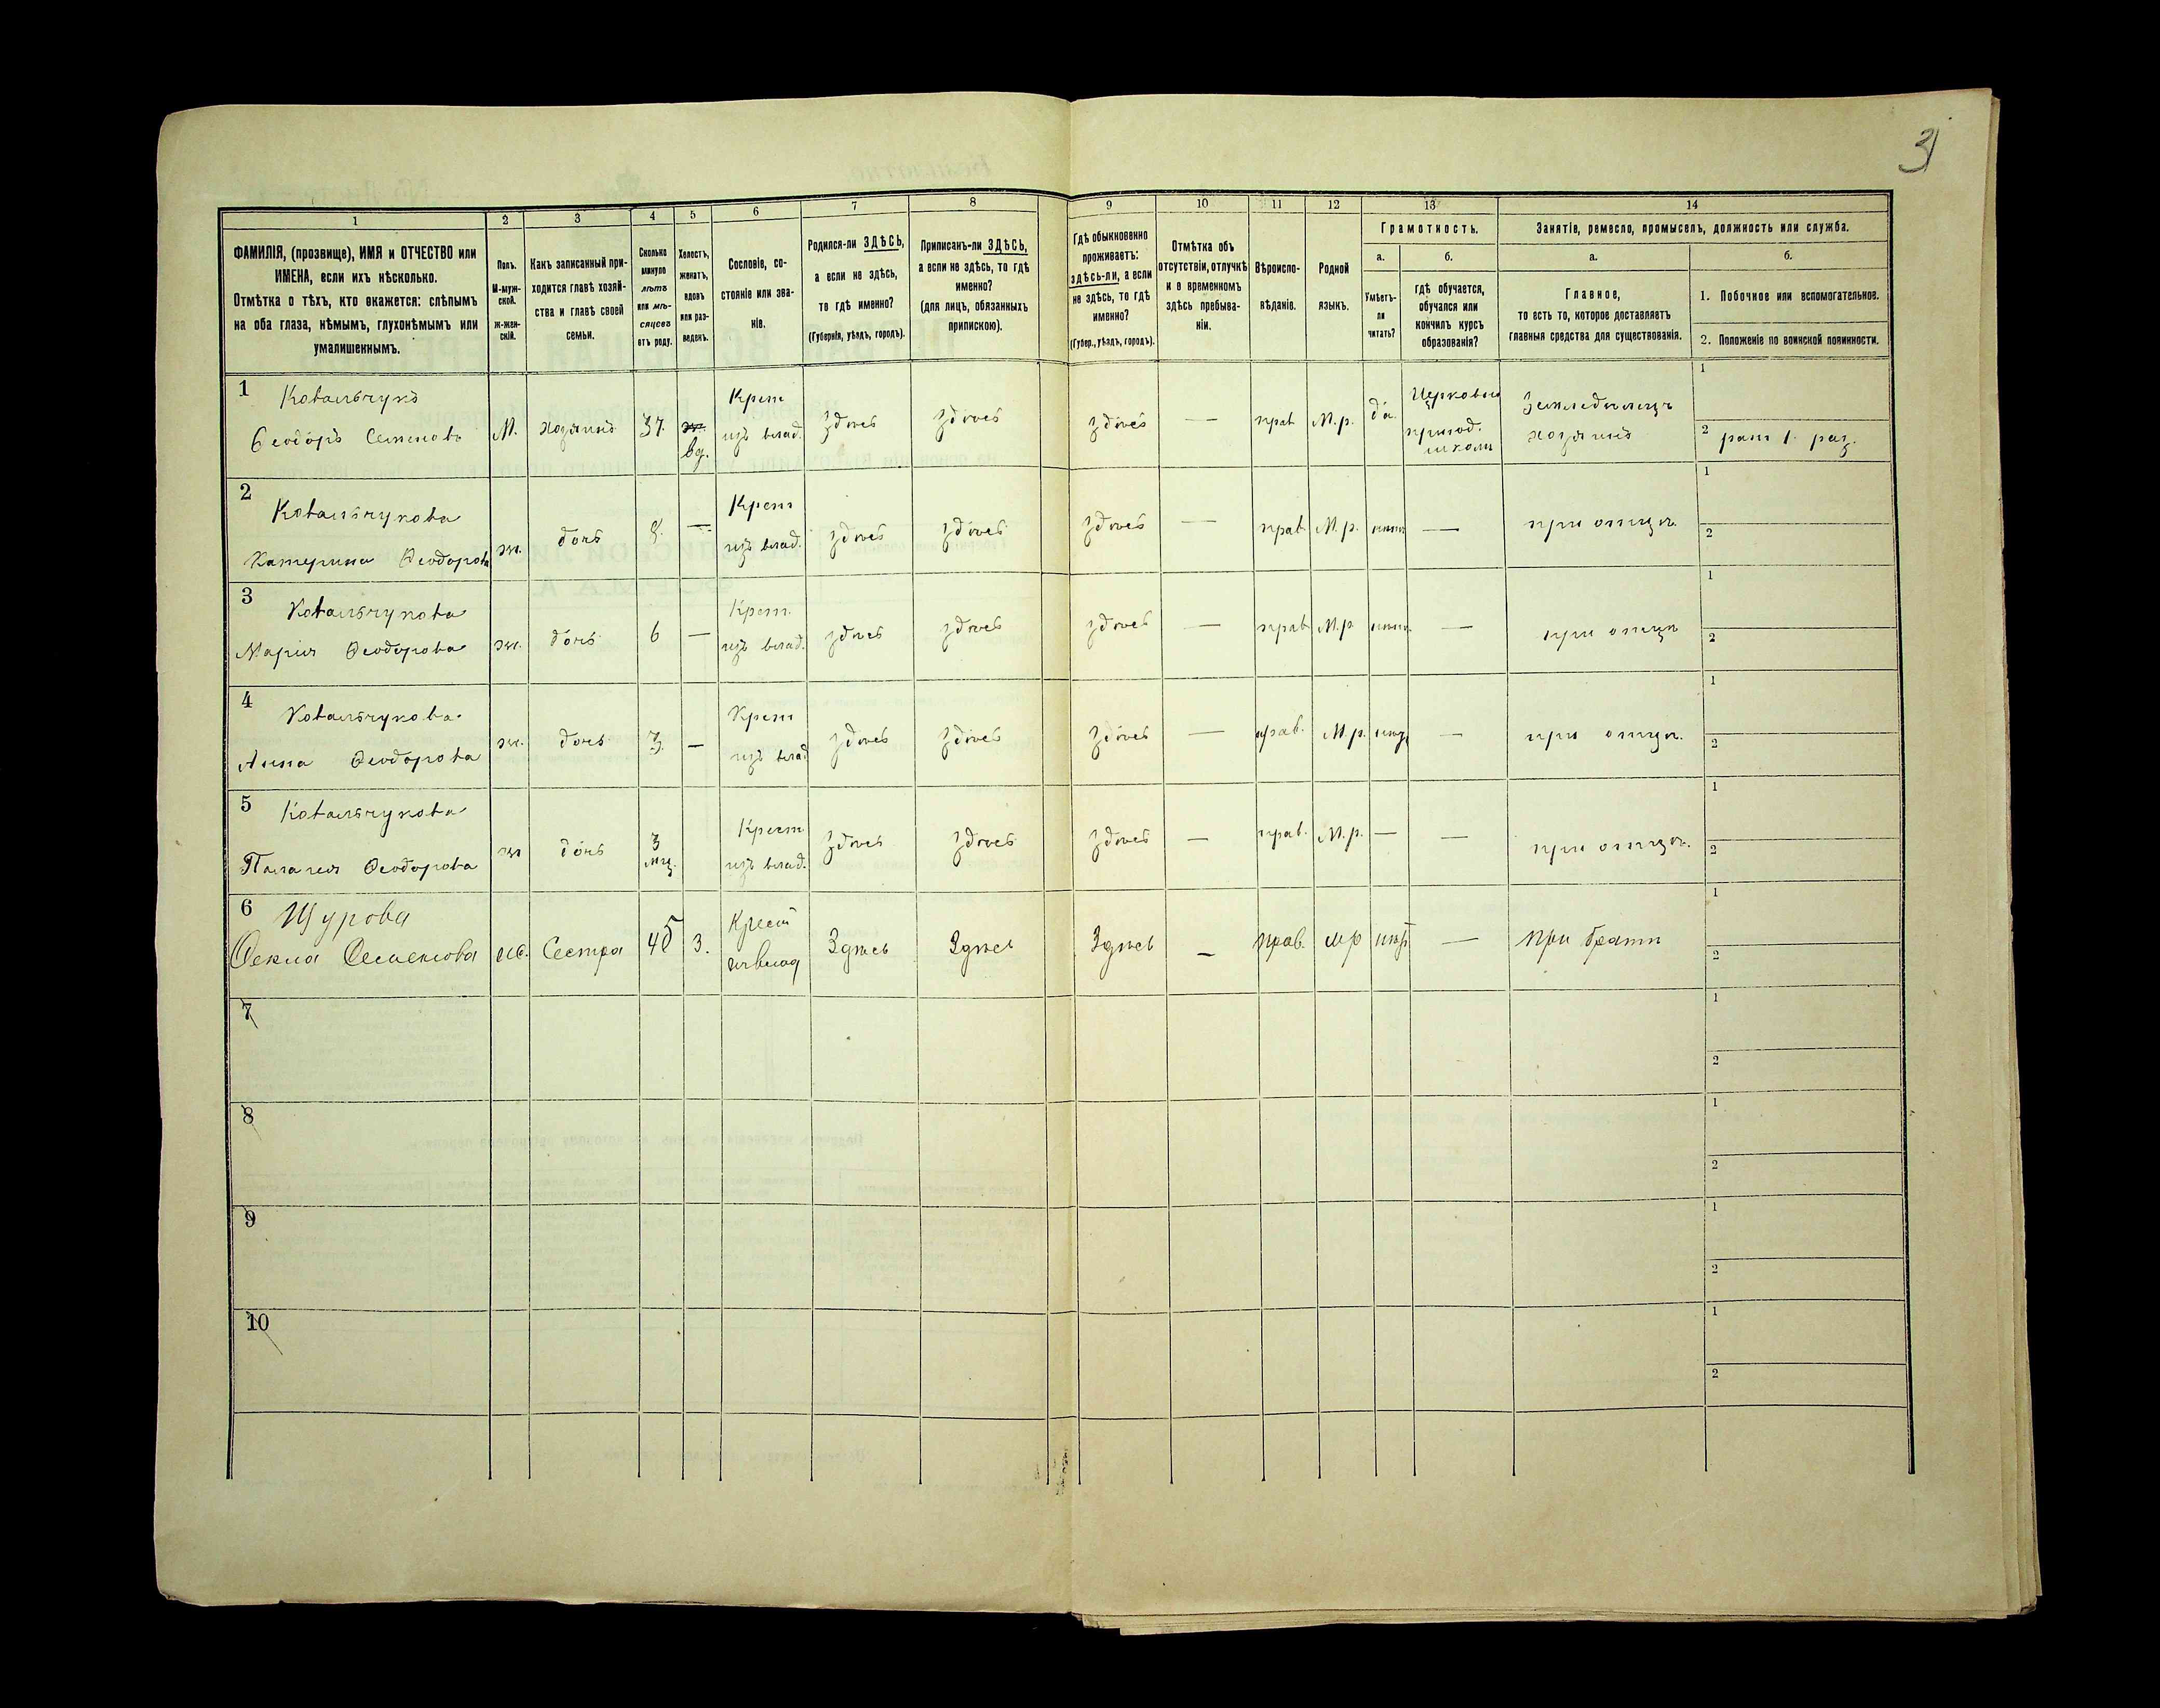 3
1 2 3 4 5 6 7 8 9 10 11 12 13 14
ФАМИЛІЯ, (прозвище), ИМЯ и ОТЧЕСТВО или
ИМЕНА, если ихъ нѣсколько.
Отмѣтка о тѣхъ, кто окажется: слѣпымъ
на оба глаза, нѣмымъ, глухонѣмымъ или
умалишеннымъ.
Полъ.
М-муж-
ской.
ж-жен-
скій.
Какъ записанный при-
ходится главѣ хозяй-
ства и главѣ своей
семьи.
Сколько
минуло
лѣтъ
или мѣ-
сяцевъ
отъ роду.
Холостъ,
женатъ,
вдовъ
или раз-
веденъ.
Сословіе, со-
стояніе или зва-
ніе.
Родился-ли ЗДѢСЬ,
а если не здѣсь,
то гдѣ именно?
(Губернія, уѣздъ, городъ).
Приписанъ-ли ЗДѢСЬ,
а если не здѣсь, то гдѣ
именно?
(для лицъ, обязанныхъ
припискою).
Гдѣ обыкновенно
проживаетъ:
здѣсь-ли, а если
не здѣсь, то гдѣ
именно?
(Губер., уѣздъ, городъ).
Отмѣтка объ
отсутствіи, отлучкѣ
и о временномъ
здѣсь пребыва-
ніи.
Вѣроиспо-
вѣданіе.
Родной
языкъ.
Грамотность.
а.
Умѣетъ-
ли
читать?
б.
гдѣ обучается,
обучался или
кончилъ курсъ
образованія?
Занятіе, ремесло, промыселъ, должность или служба.
а.
Главное,
то есть то, которое доставляетъ
главныя средства для существованія.
б.
1. Побочное или вспомогательное.
2. Положеніе по воинской повинности.
1 Ковальчукъ
Ѳеодоръ Семеновъ
М. хозяинъ 37 вд.
Крест
изъ влад.
здѣсь здѣсь здѣсь — прав М.р. да
Церковно
приход.
школи
Земледѣлецъ
хозяинъ
1
2 рат 1. раз.
2 Ковальчукова
Катерина Ѳеодорова
ж. дочь 8. —
Крест
изъ влад.
здѣсь здѣсь здѣсь — прав М.р. — при отцѣ
1
2
3 Ковальчукова
Марія Ѳеодорова
ж. дочь 6 —
Крест.
изъ влад.
здѣсь здѣсь здѣсь — прав М.р. — при отцѣ
1
2
4 Ковальчукова
Анна Ѳеодорова
ж. дочь 3 —
Крест
изъ влад
здѣсь здѣсь здѣсь — прав. М.р. — при отцѣ.
1
2
5 Ковальчукова
Палагея Ѳеодорова
ж дочь 3
мц.
Крест
изъ влад.
здѣсь здѣсь здѣсь — прав. М.р. — — при отцѣ.
1
2
6 Щурова
Ѳекла Семенова
ж. Сестра 45 З.
Крест
изъ влад
Здѣсь Здѣсь Здѣсь — прав. мр — при братѣ
1
2
7
1
2
8
1
2
9
1
2
10
1
2